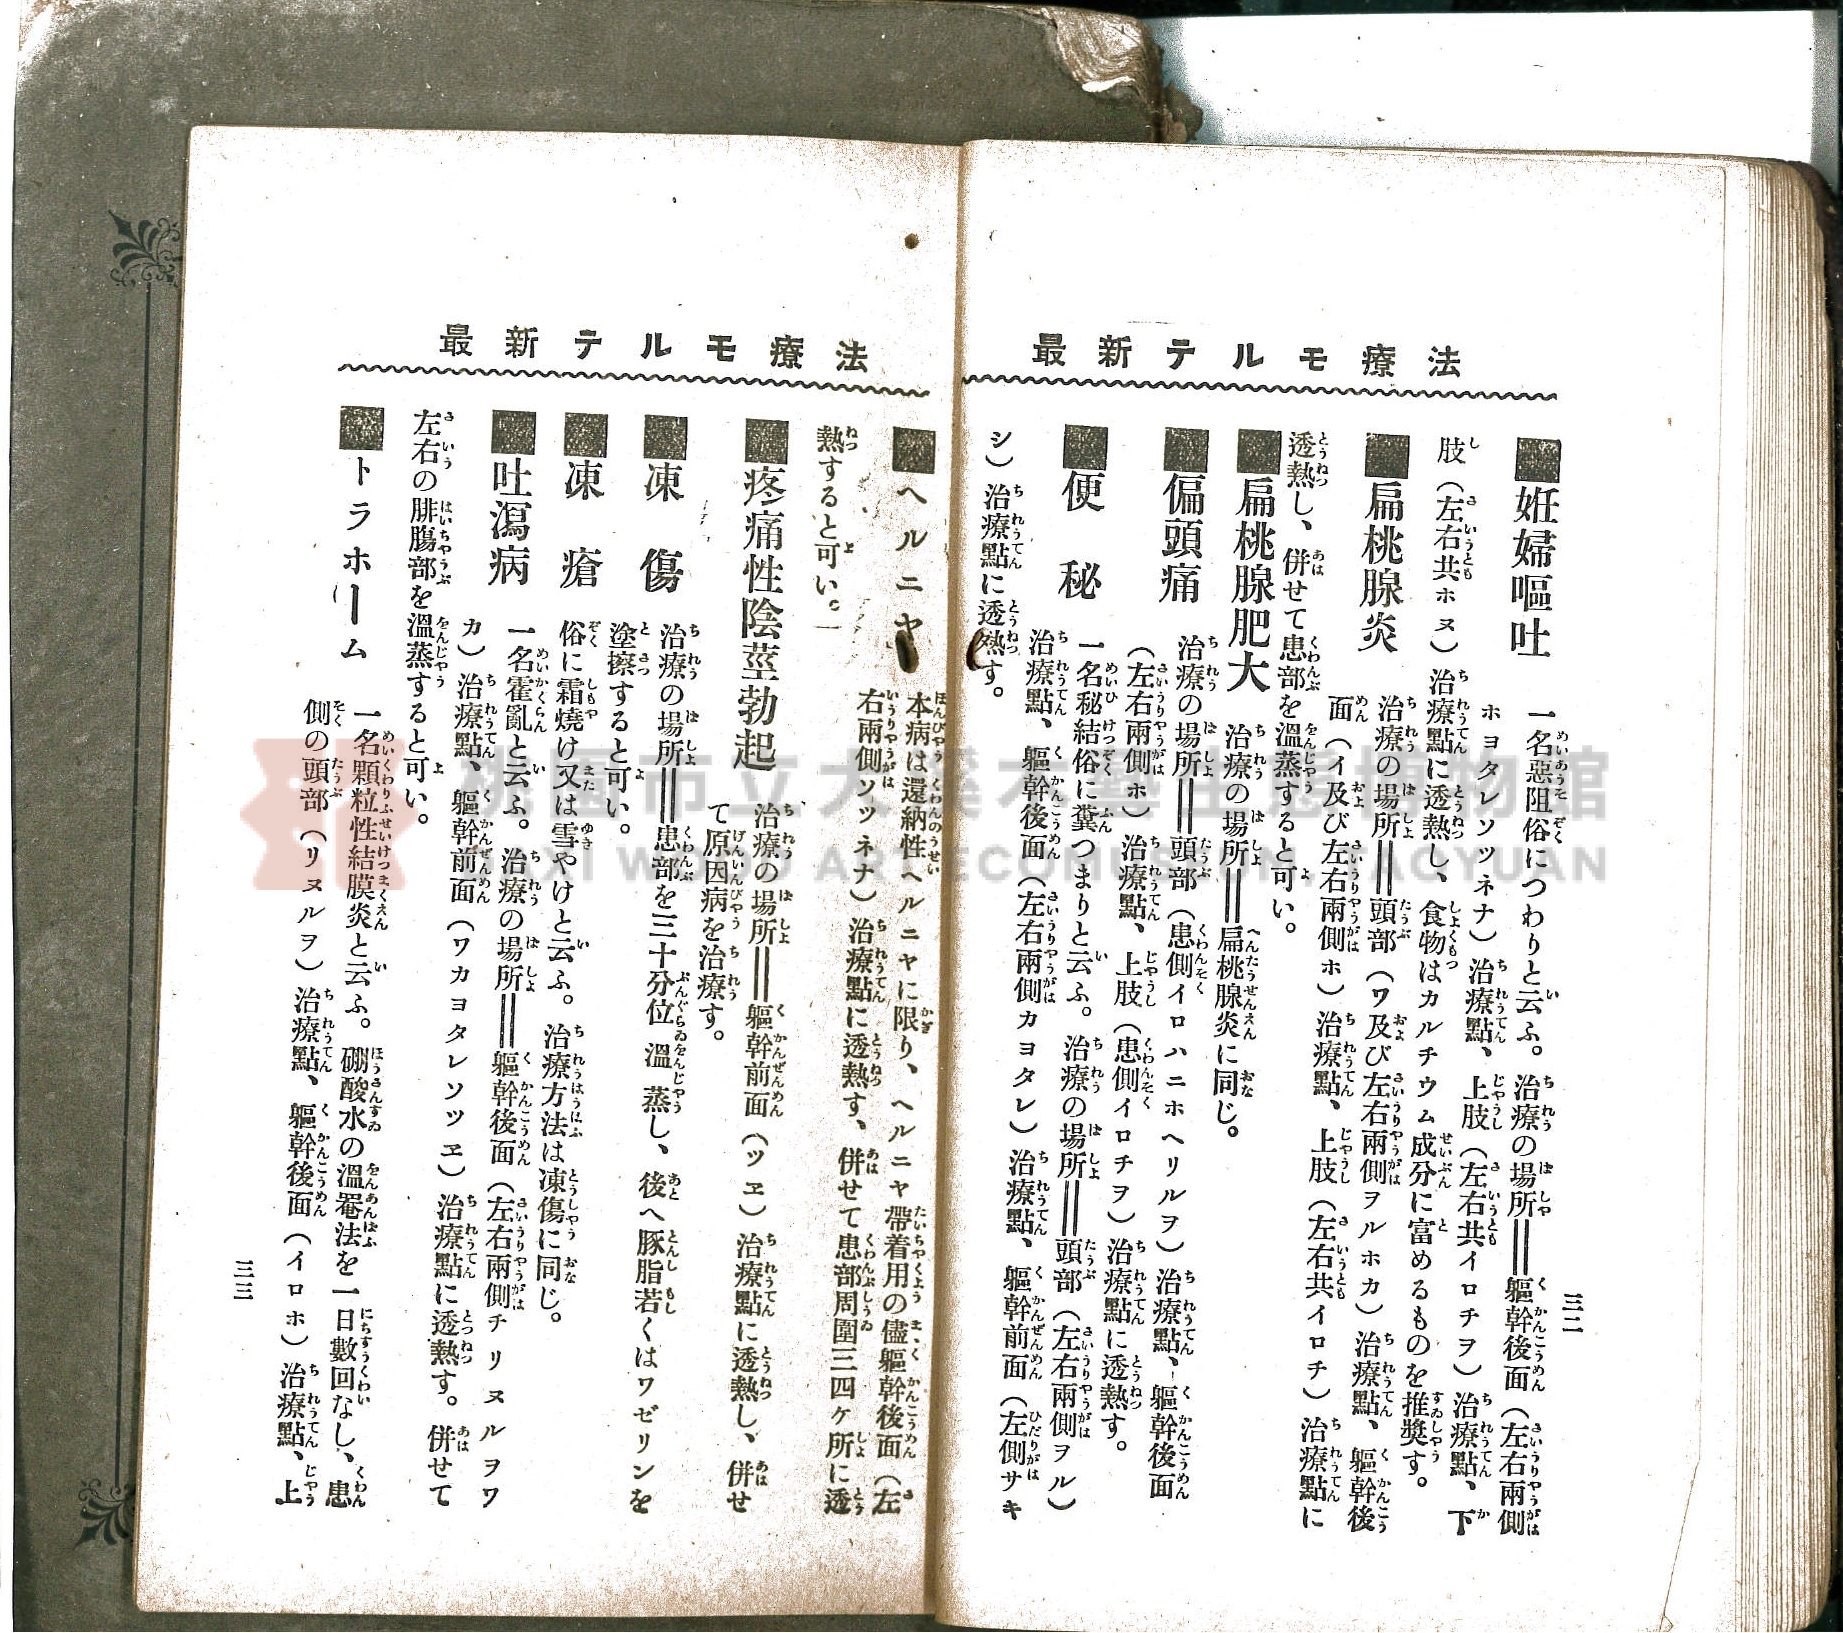 最新テルモ療法
■妊婦嘔吐
一名惡阻俗につわりと云ふ。治療の場所＝軀幹後面（左右兩側
ホヨタレソツネナ）治療點、上肢（左右共イロチヲ）治療點、下
肢（左右共ホヌ）治療點に透熱し、食物はカルチウム成分に富めるものを推奬す。
■扁桃腺炎
治療の場所＝頭部（ワ及び左右兩側ヲルホカ）治療點、軀幹後
面（イ及び左右兩側ホ）治療點、上肢（左右共イロチ）治療點に
透熱し、併せて患部を溫蒸すると可い。
■扁桃腺肥大
治療の場所＝扁桃腺炎に同じ。
■偏頭痛
治療の場所＝頭部（患側イロハニホヘリルヲ）治療點、軀幹後面
（左右兩側ホ）治療點、上肢（患側イロチヲ）治療點に透熱す。
■便秘
一名秘結俗に糞つまりと云ふ。治療の場所＝頭部（左右兩側ヲル）
治療點、軀幹後面（左右兩側カヨタレ）治療點、軀幹前面（左側サキ
シ）治療點に透熱す。
三二
最新テルモ療法
■ヘルニヤ
本病は還納性ヘルニヤに限り、ヘルニヤ帶着用の儘軀幹後面（左
右兩側ソツネナ）治療點に透熱す、併せて患部周圍三四ヶ所に透
熱すると可い。
■疼痛性陰莖勃起
治療の場所＝軀幹前面（ツヱ）治療點に透熱し、併せ
て原因病を治療す。
■凍傷
治療の場所＝患部を三十分位溫蒸し、後へ豚脂若くはワゼリンを
塗擦すると可い。
■凍瘡
俗に霜燒け又は雪やけと云ふ。治療方法は凍傷に同じ。
■吐瀉病
一名霍亂と云ふ。治療の場所＝軀幹後面（左右兩側チリヌルヲワ
カ）治療點、軀幹前面（ワカヨタレソツヱ）治療點に透熱す。併せて
左右の腓膓部を溫蒸すると可い。
■トラホーム
一名顆粒性結膜炎と云ふ。硼酸水の溫罨法を一日數回なし、患
側の頭部（リヌルヲ）治療點、軀幹後面（イロホ）治療點、上
三三
桃園市立大溪木藝生態博物館
DAXI WOOD ART ECOMUSEUM, TAOYUAN